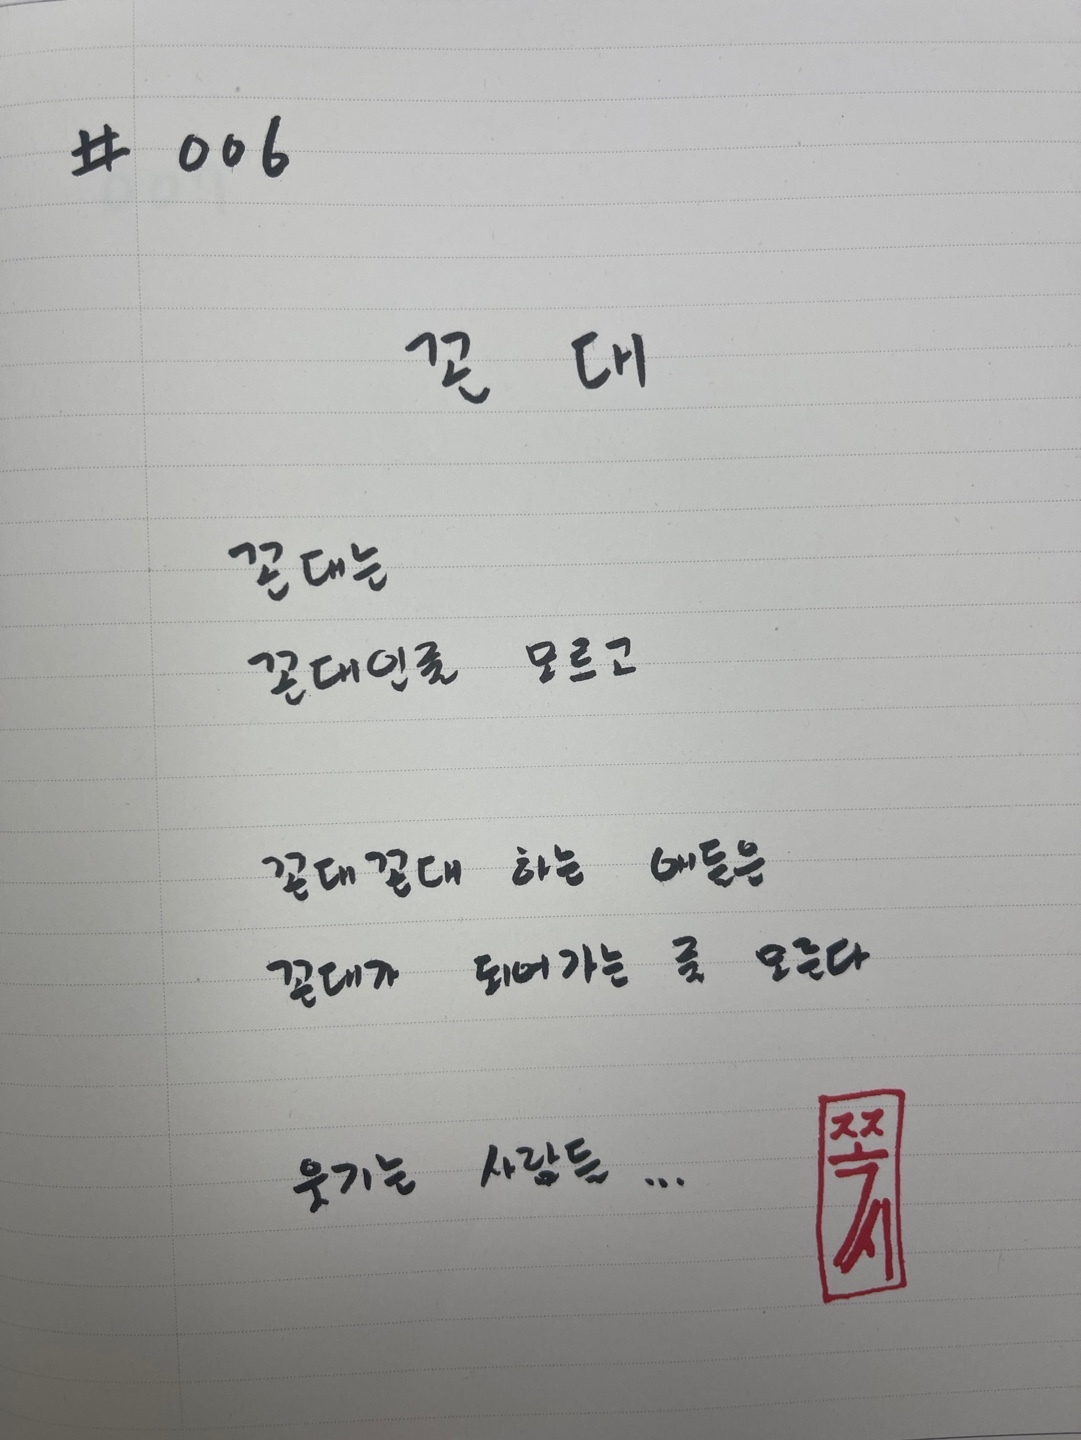 # 006
꼰 대
꼰대는
꼰대인줄 모르고
꼰대꼰대 하는 애들은
꼰대가 되어가는 줄 모른다
웃기는 사람들 ...
쪽시